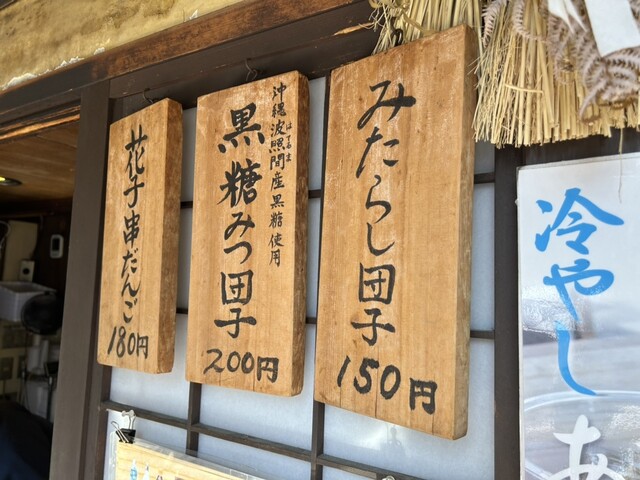 みたらし団子
150円
沖縄波照間産黒糖使用
はてるま
黒糖みつ団子
200円
花子串だんご
180円
冷やし
あ